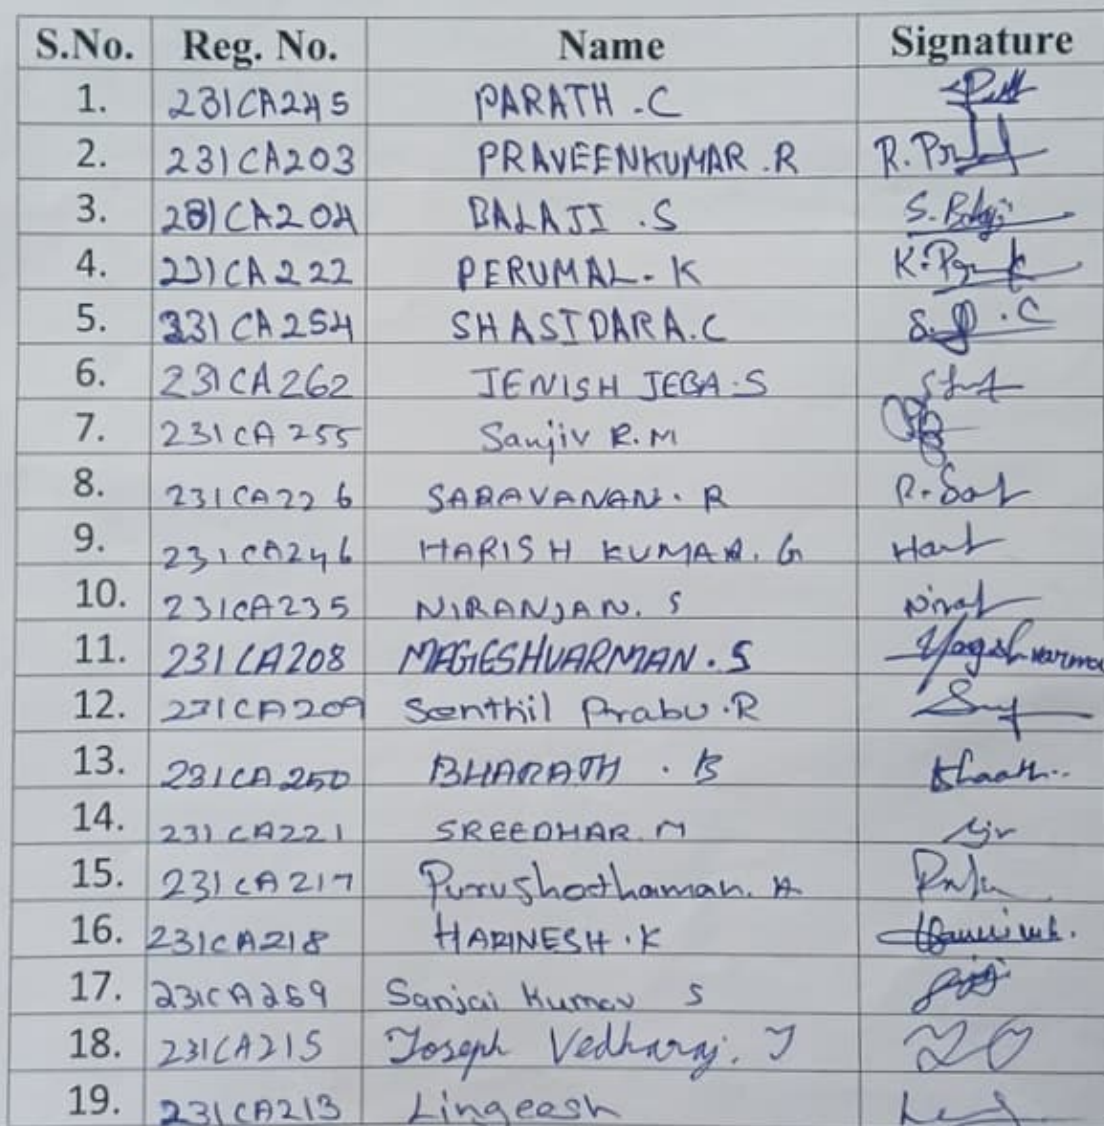 S.No. Reg. No. Name Signature
1. 231CA245 PARATH .C
2. 231CA203 PRAVEENKUMAR .R R.
3. 231CA204 BALAJI .S S. Balaji
4. 231CA222 PERUMAL. K K.
5. 231CA254 SHASIDARA.C S. .C
6. 231CA262 JENISH JEBA.S
7. 231CA255 Sanjiv R.M
8. 231CA226 SARAVANAN. R R.
9. 231CA246 HARISH KUMAR. G
10. 231CA235 NIRANJAN. S
11. 231CA208 MAGESHVARMAN.S
12. 231CA209 Senthil Prabu.R
13. 231CA250 BHARATH . B
14. 231CA221 SREEDHAR.M
15. 231CA217 Purushothaman. A
16. 231CA218 HARINESH.K
17. 231CA269 Sanjai Kumar S
18. 231CA215 Joseph Vedharaj. J
19. 231CA213 Lingeesh